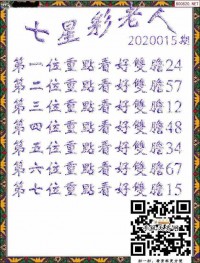 七星彩老人
2020015期
第一位重點看好雙膽24
第二位重點看好雙膽57
第三位重點看好雙膽12
第四位重點看好雙膽48
第五位重點看好雙膽34
第六位重點看好雙膽67
第七位重點看好雙膽15